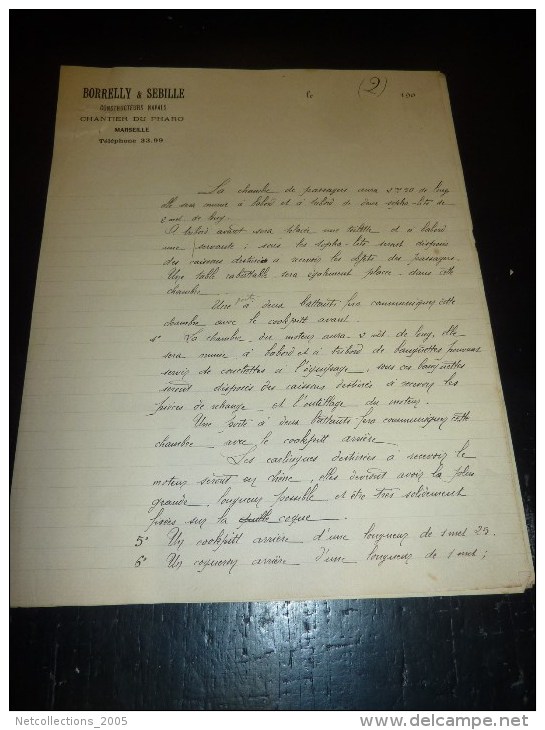 BORRELLY & SEBILLE
CONSTRUCTEURS NAVALS
CHANTIER DU PHARO
MARSEILLE
Téléphone 33.99
le (2) 190
La chambre de passagers aura 2m50 de long
elle sera munie à babord et à tribord de deux sopha-lits de
2 mét. de long.
A tribord avant sera placée une toilette et à babord
une servante ; sous les sopha-lits seront disposés
des caissons destinés à recevoir les effets des passagers.
Une table rabattable sera également placée dans cette
chambre.
Une porte à deux battants fera communiquer cette
chambre avec le cookpitt avant.
4° La chambre du moteur aura 2 mét de long, elle
sera munie à babord et à tribord de banquettes pouvant
servir de couchettes à l'équipage, sous ces banquettes
seront disposés des caissons destinés à recevoir les
pièces de rechange et l'outillage du moteur.
Une porte à deux battants fera communiquer cette
chambre avec le cookpitt arrière.
Les carlingues destinées à recevoir le
moteur seront en chêne, elles devront avoir la plus
grande longueur possible et être très solidement
fixées sur la coque.
5° Un cookpitt arrière d'une longueur de 1 mét 25.
6° Un coqueron arrière d'une longueur de 1 mét ;
Netcollections_2005